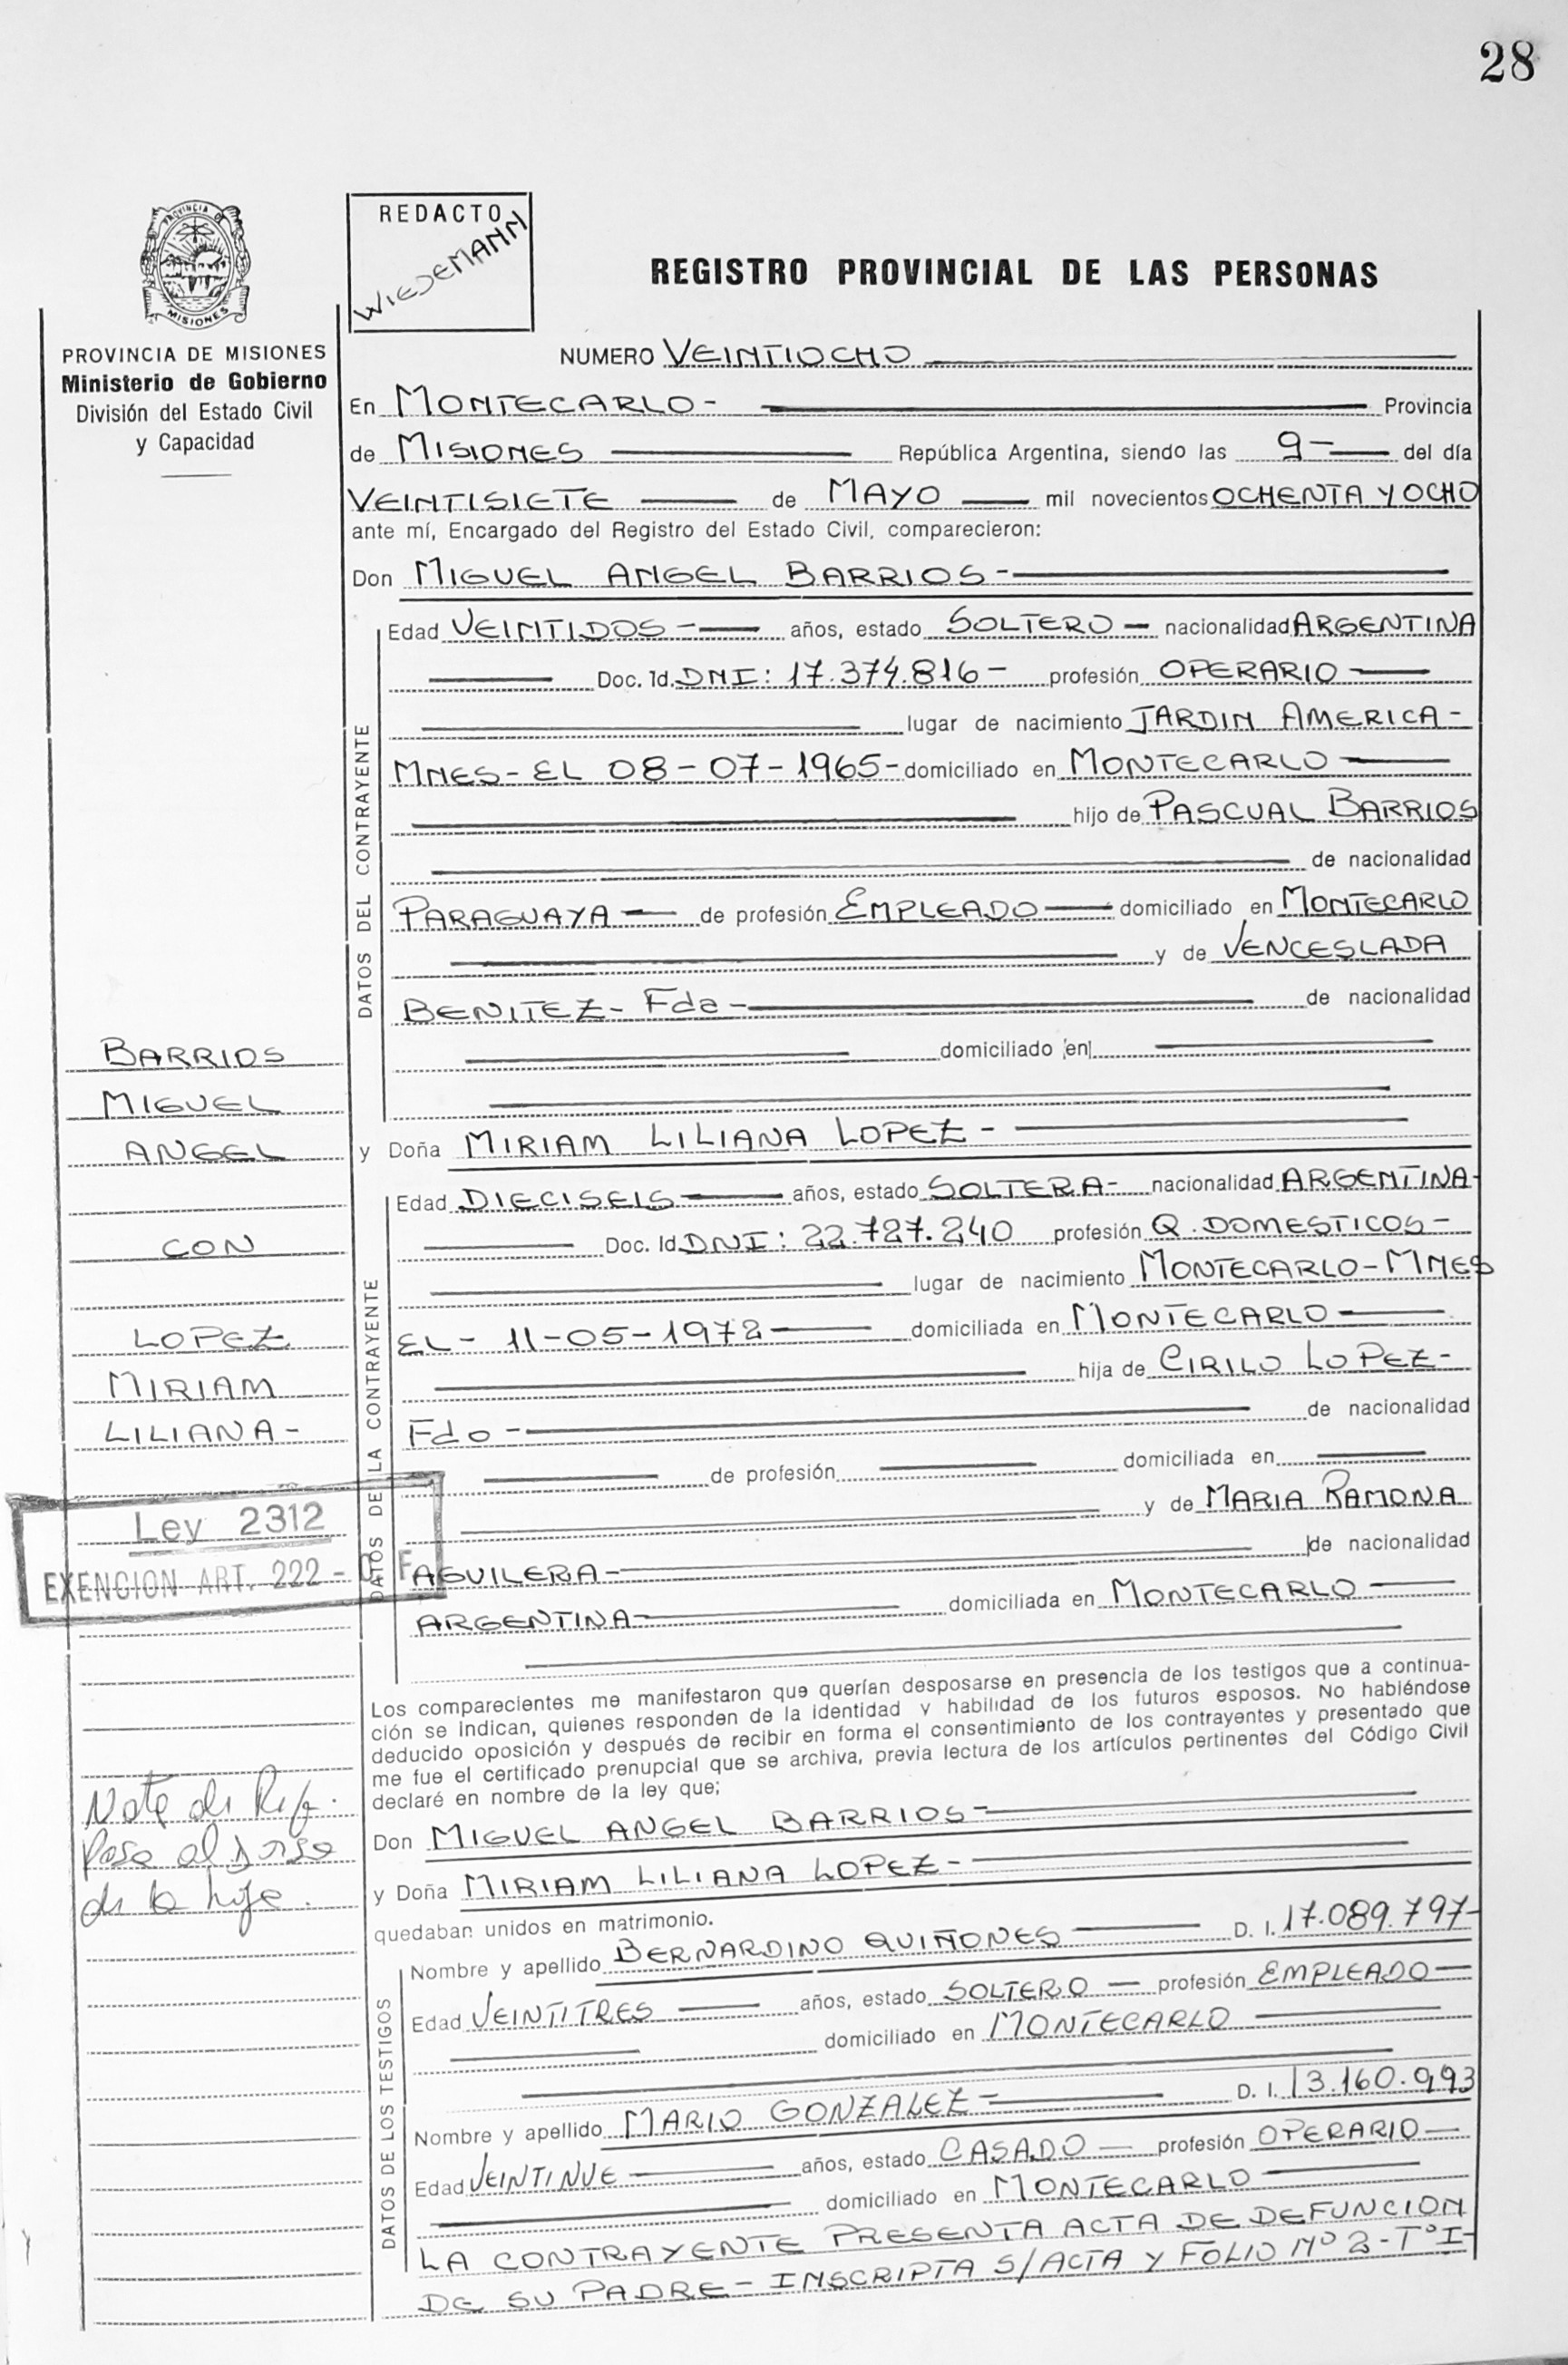 28
PROVINCIA DE
MISIONES
REDACTO
WIEDEMANN
REGISTRO PROVINCIAL DE LAS PERSONAS
PROVINCIA DE MISIONES
Ministerio de Gobierno
División del Estado Civil
y Capacidad
NUMERO VEINTIOCHO
En MONTECARLO- Provincia
de MISIONES República Argentina, siendo las 9- del día
VEINTISIETE de MAYO mil novecientos OCHENTA Y OCHO
ante mí, Encargado del Registro del Estado Civil, comparecieron:
Don MIGUEL ANGEL BARRIOS-
DATOS DEL CONTRAYENTE
Edad VEINTIDOS- años, estado SOLTERO- nacionalidad ARGENTINA
Doc. Id. DNI: 17.374.816- profesión OPERARIO
lugar de nacimiento JARDIN AMERICA-
MNES- EL 08-07-1965- domiciliado en MONTECARLO
hijo de PASCUAL BARRIOS
de nacionalidad
PARAGUAYA de profesión EMPLEADO domiciliado en MONTECARLO
y de VENCESLADA
BENITEZ- Fda- de nacionalidad
domiciliado en
BARRIOS
MIGUEL
ANGEL
CON
LOPEZ
MIRIAM
LILIANA-
y Doña MIRIAM LILIANA LOPEZ-
DATOS DE LA CONTRAYENTE
Edad DIECISEIS años, estado SOLTERA- nacionalidad ARGENTINA-
Doc. Id. DNI: 22.727.240 profesión Q. DOMESTICOS-
lugar de nacimiento MONTECARLO-MNES
EL- 11-05-1972 domiciliada en MONTECARLO
hija de CIRILO LOPEZ-
Fdo- de nacionalidad
de profesión domiciliada en
y de MARIA RAMONA
AGUILERA- de nacionalidad
ARGENTINA- domiciliada en MONTECARLO
Ley 2312
EXENCION ART. 222 - C F
Los comparecientes me manifestaron que querían desposarse en presencia de los testigos que a continua-
ción se indican, quienes responden de la identidad y habilidad de los futuros esposos. No habiéndose
deducido oposición y después de recibir en forma el consentimiento de los contrayentes y presentado que
me fue el certificado prenupcial que se archiva, previa lectura de los artículos pertinentes del Código Civil
declaré en nombre de la ley que;
Nota de Ref.
Pasa al dorso
de la hoja.
Don MIGUEL ANGEL BARRIOS-
y Doña MIRIAM LILIANA LOPEZ-
quedaban unidos en matrimonio.
DATOS DE LOS TESTIGOS
Nombre y apellido BERNARDINO QUIÑONES D. I. 17.089.797-
Edad VEINTITRES años, estado SOLTERO- profesión EMPLEADO
domiciliado en MONTECARLO
Nombre y apellido MARIO GONZALEZ- D. I. 13.160.993
Edad VEINTINUE años, estado CASADO profesión OPERARIO
domiciliado en MONTECARLO
LA CONTRAYENTE PRESENTA ACTA DE DEFUNCION
DE SU PADRE- INSCRIPTA S/ACTA Y FOLIO Nº 2-TºI-